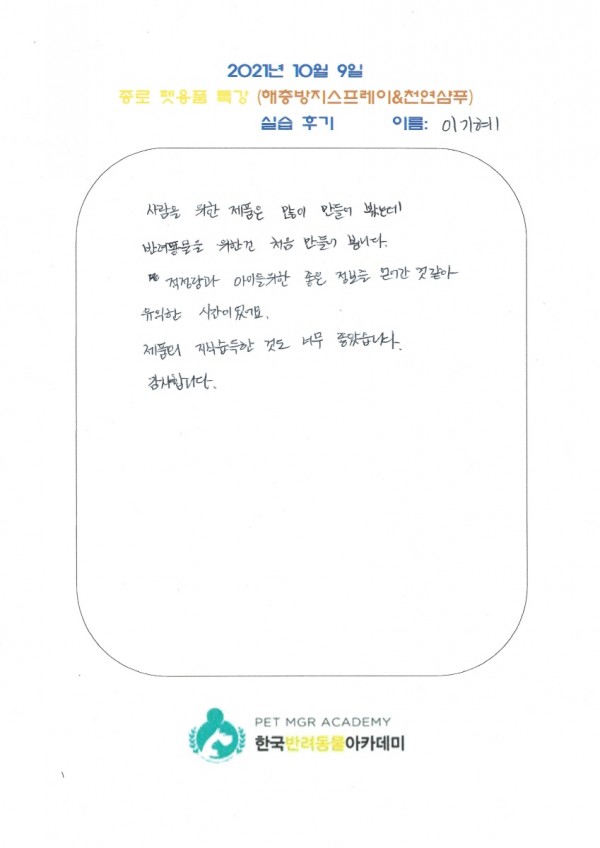 2021년 10월 9일
종로 펫용품 특강 (해충방지스프레이&천연샴푸)
실습 후기 이름: 이기혜
사람을 위한 제품은 많이 만들어 봤는데
반려동물을 위한건 처음 만들어 봅니다.
아이들위한 좋은 정보를 얻어간 것같아
유의한 시간이었어요.
제품의 지식습득한 것도 너무 좋았습니다.
감사합니다.
PET MGR ACADEMY
한국반려동물아카데미